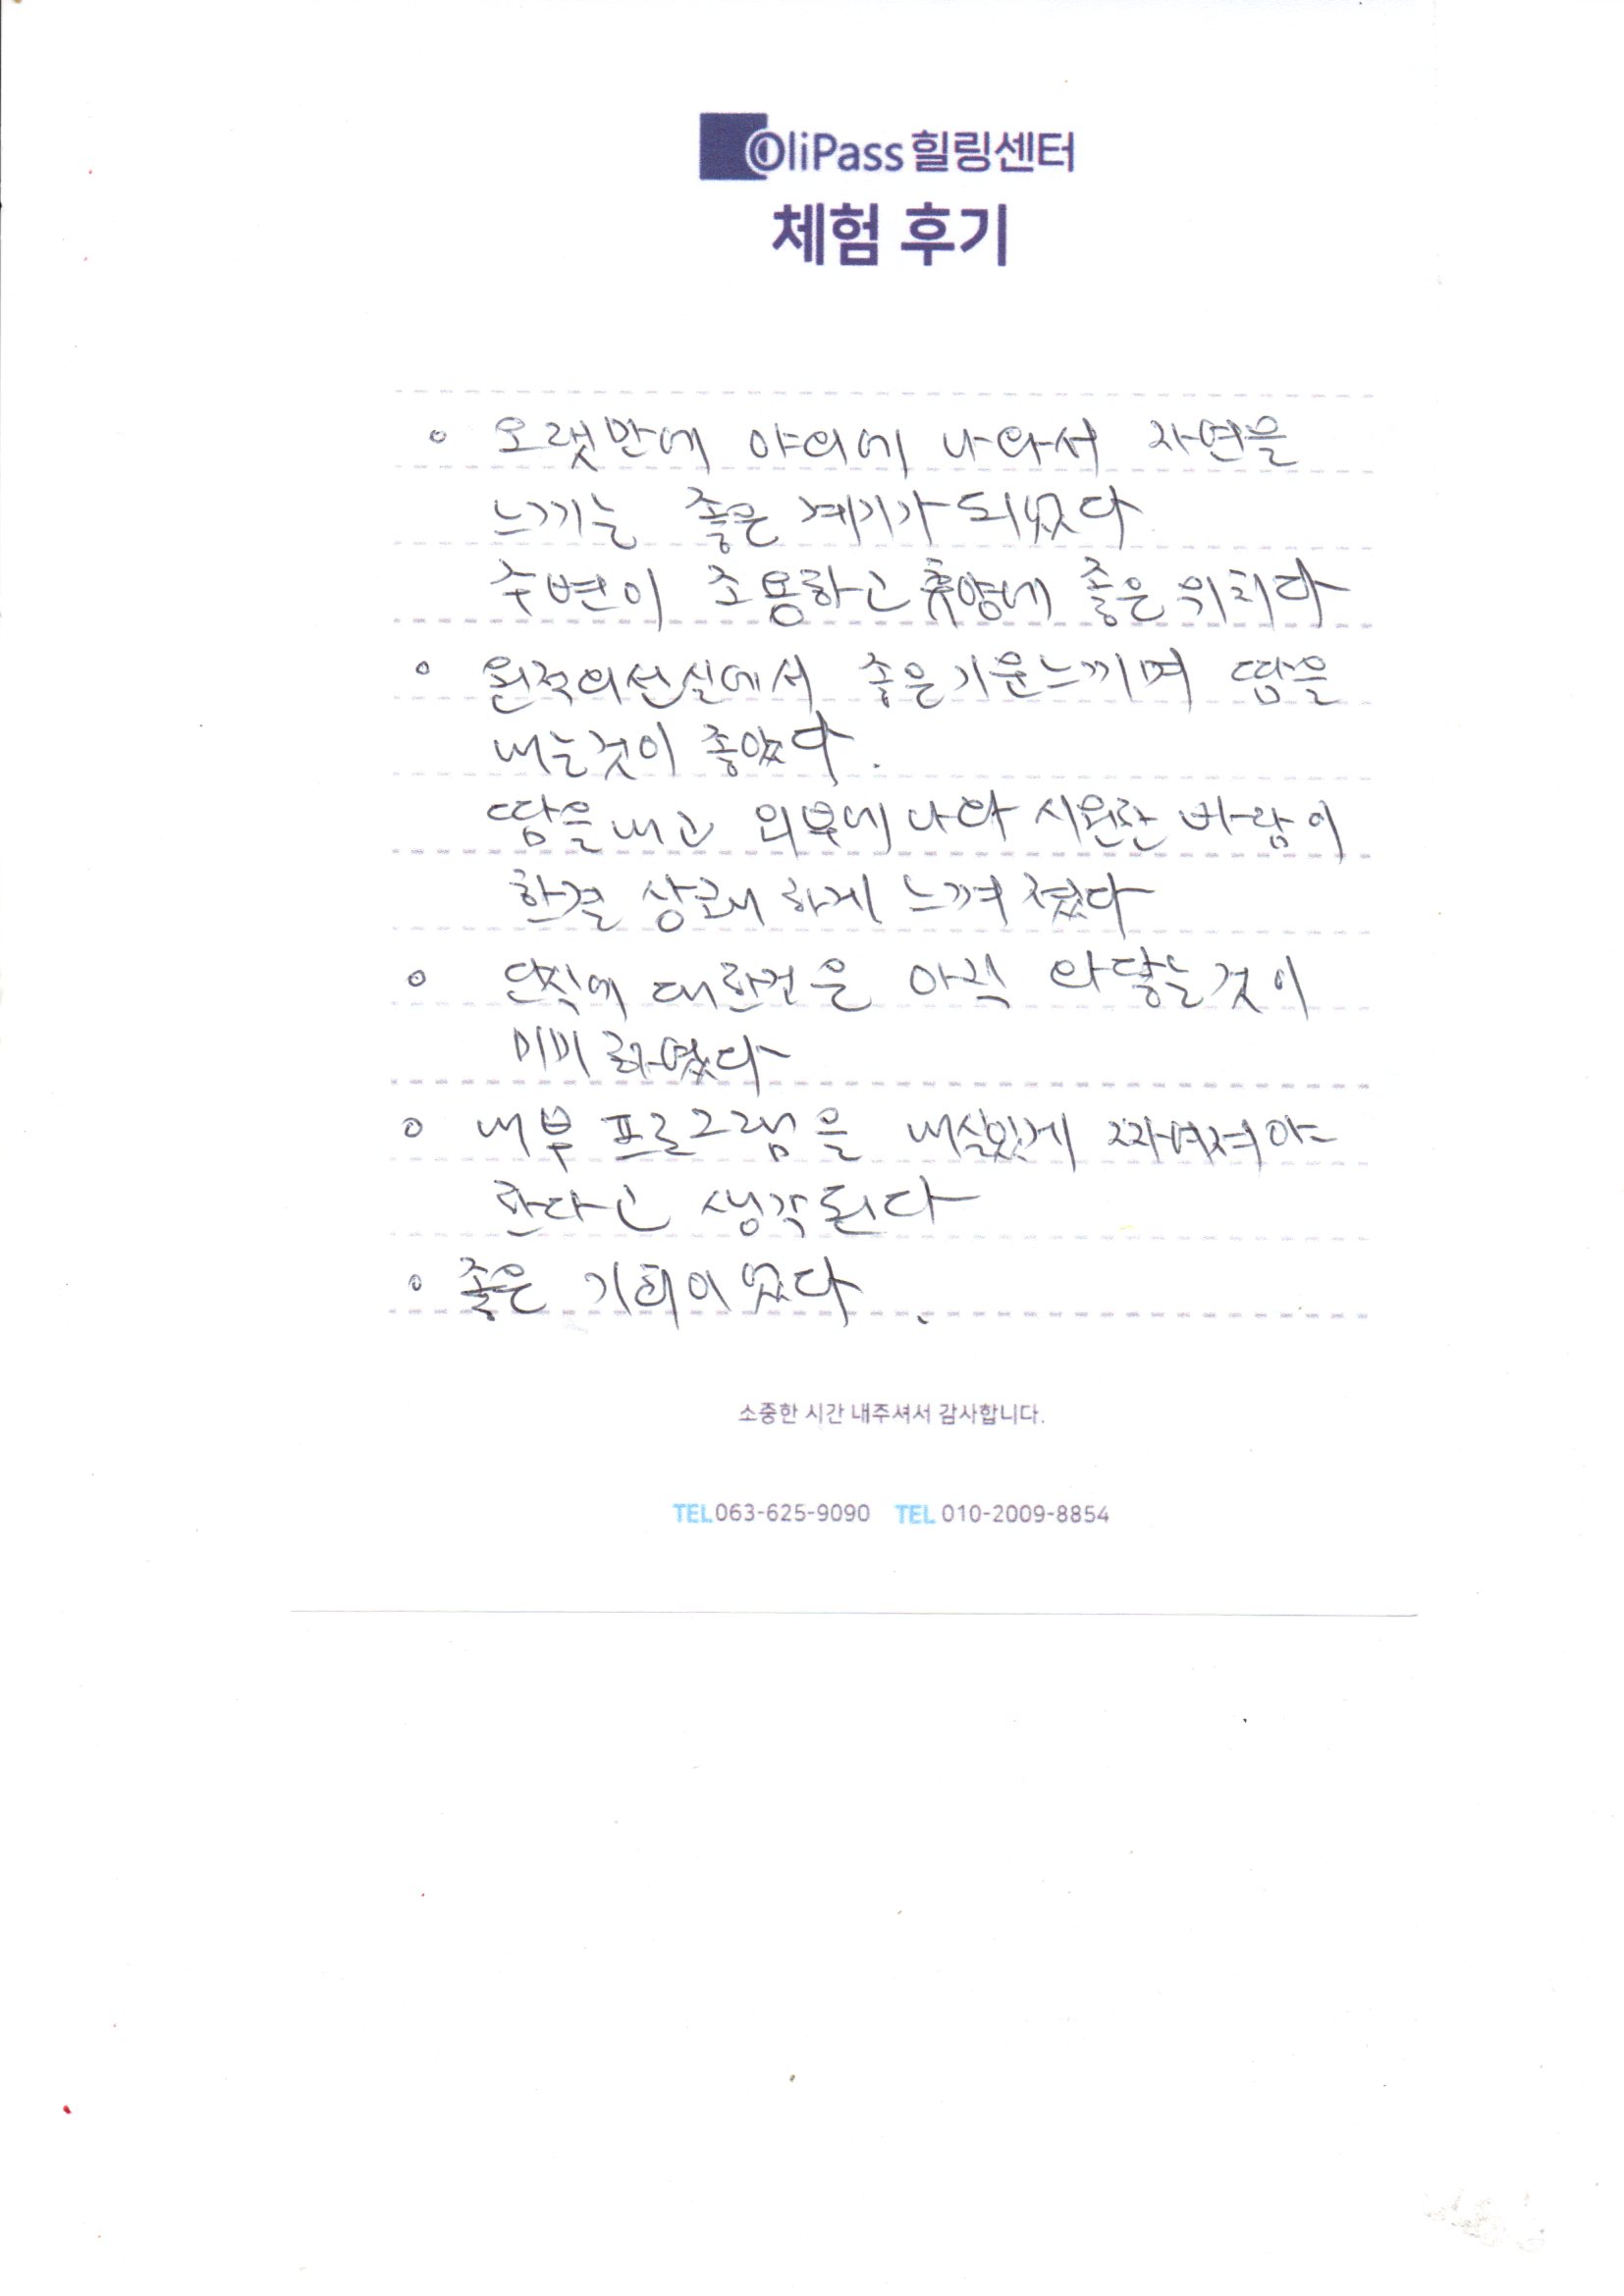 OliPass 힐링센터
체험 후기
o 오랫만에 야외에 나와서 자연을
느끼는 좋은 계기가 되었다
주변이 조용하고 휴양에 좋은 위치다
o 원적외선실에서 좋은기운느끼며 땀을
내는것이 좋았다.
땀을내고 외부에 나와 시원한 바람이
한결 상쾌하게 느껴졌다
o 단찍에 대한건은 아직 와닿는것이
미미하였다
o 내부 프로그램을 내실있게 짜여져야
한다고 생각된다
o 좋은 기회이었다.
소중한 시간 내주셔서 감사합니다.
TEL 063-625-9090 TEL 010-2009-8854